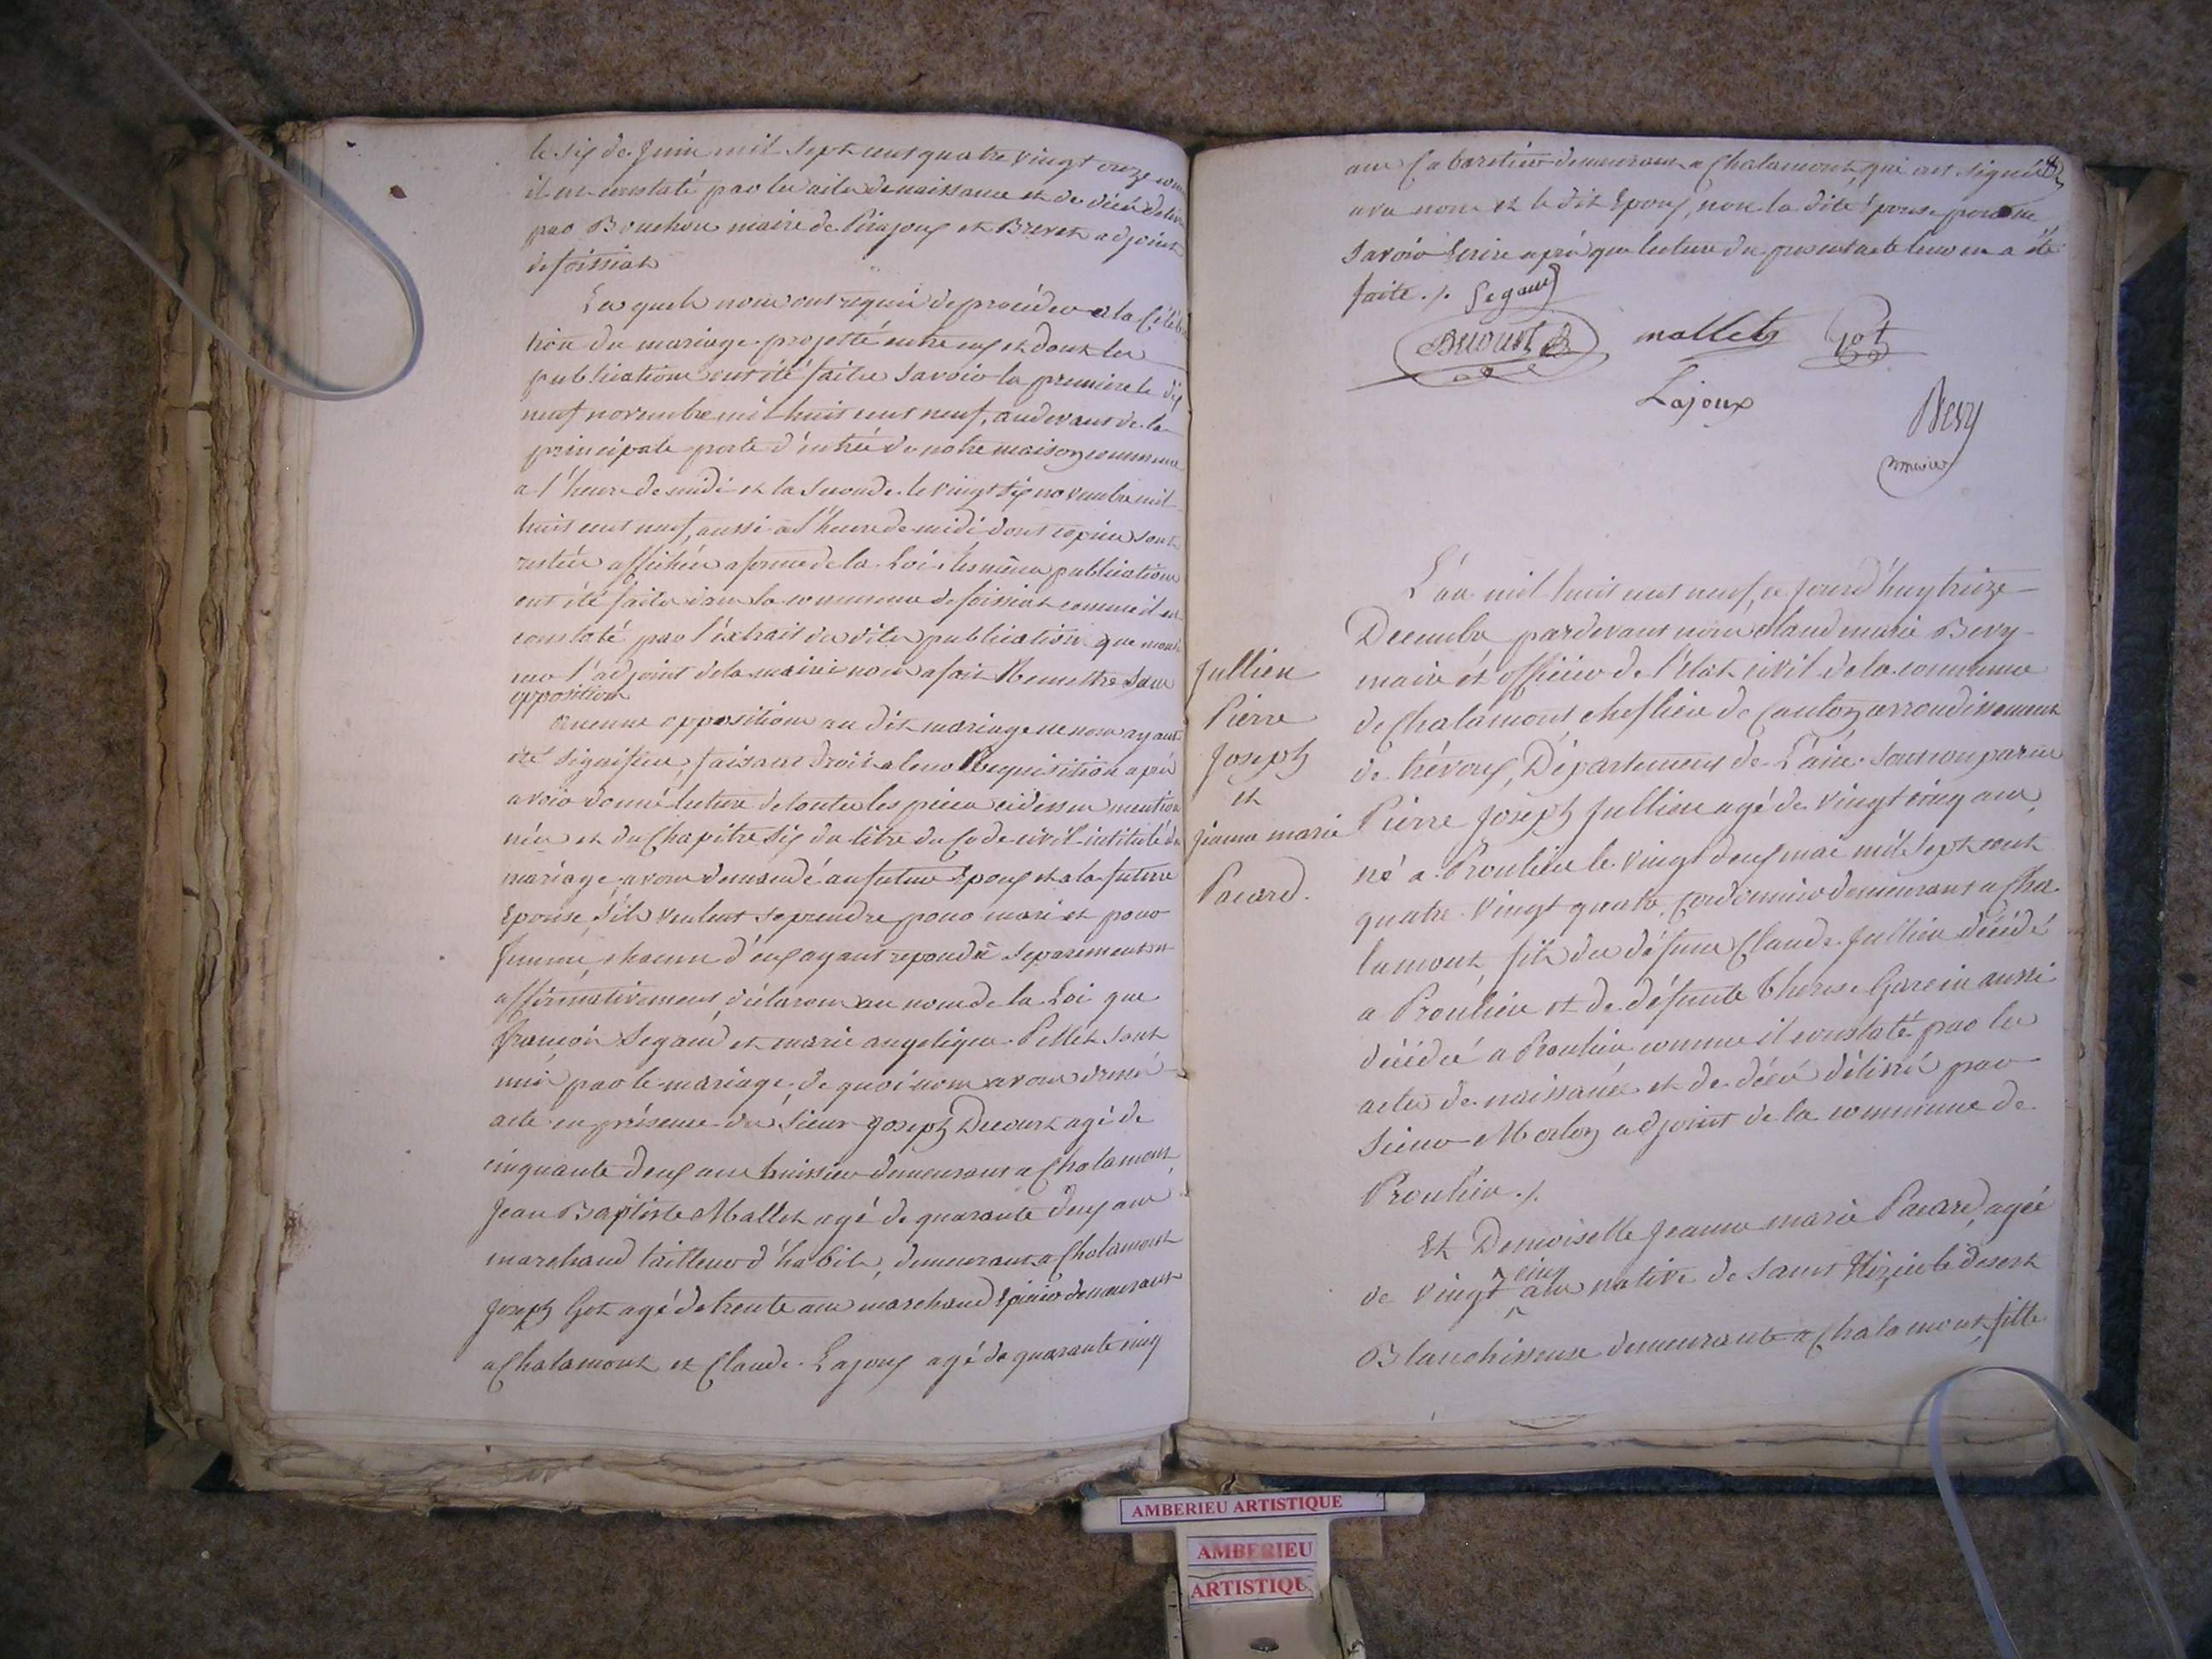 le six de Juin mil sept cent quatre vingt onze comme
il en constaté par les actes de naissance et de décès délivré
par Bouchou maire de Pirajoux et Brevet adjoint
de foissiat
Les quels nous ont requis de procéder a la Célébra
tion du mariage projetté entre eux et dont les
publications ont été faites savoir la premiere le dix
neuf novembre mil huit cent neuf, au devant de la
principale porte d'entrée de notre maison commune
a l'heure de midi et la seconde le vingt six novembre mil
huit cent neuf, aussi a l'heure de midi, dont copies sont
restées affichées a forme de la Loi, les mêmes publications
ont été faites dans la commune de foissiat comme il en
constaté par l'extrait des dites publication que
l'adjoint de la mairie nous a fait Remettre sans
opposition
Aucune opposition au dit mariage ne nous ayant
été signifiée, faisant droit a leur Requisition après
avoir donné lecture de toutes les pieces cidessus mention
nées et du Chapitre six du titre du Code civil intitulé du
mariage, avons demandé au futur Epoux et a la future
Epouse, s'ils veulent se prendre pour mari et pour
femme, chacun d'eux ayant repondu separement et
affirmativement, déclarons au nom de la Loi que
françois Segaud et marie angelique Pellet sont
unis par le mariage, de quoi nous avons dressé
acte en présence des sieurs Joseph Ducurt agé de
cinquante deux ans huissier demeurant a Chalamont,
Jean Baptiste Mallet agé de quarante deux ans
marchand tailleur d'habits, demeurant a Chalamont
Joseph Got agé de trente ans marchand Epicier demeurant
a Chalamont et Claude Lajoux agé de quarante cinq
ans Cabaretier demeurant a Chalamont, qui ont signés
avec nous et le dit Epoux, non la dite Epouse pour ne
savoir Ecrire après que lecture du present acte leur en a été
faite ./. Segaud
mallet
Got
Lajoux
Bevy
maire
L'an mil huit cent neuf, ce jourd'huy treize
Decembre pardevant nous Claud marie Bevy
maire et officier de l'Etat civil de la commune
de Chalamont, chef lieu de Canton arrondissement
de trévoux, Département de L'ain. sont comparus
Jullien
Pierre
Joseph
et
jeanne marie
Pacard.
Pierre Joseph Jullien agé de vingt cinq ans,
né a Proulieu le vingt deux mai mil sept cent
quatre vingt quatre, cordonnier demeurant a Cha
lamont, fils de défunt Claude Jullien décédé
a Proulieu et de défunte therese Garcin aussi
décédée a Proulieu comme il constaté par les
actes de naissance et de décès délivré par
sieur Morlon adjoint de la commune de
Proulieu ./.
Et Demoiselle Jeanne marie Pacard, agée
cinq
de vingt ans native de saint Nizier le desert
Blanchisseuse demeurante a Chalamont, fille
AMBERIEU ARTISTIQUE
AMBERIEU
ARTISTIQU